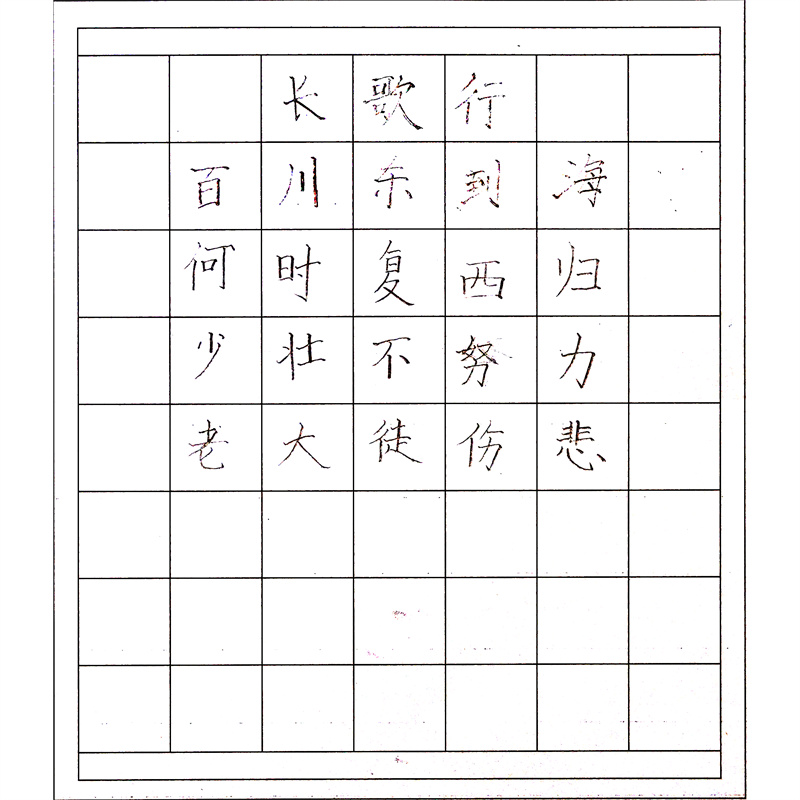 长歌行
百川东到海
何时复西归
少壮不努力
老大徒伤悲